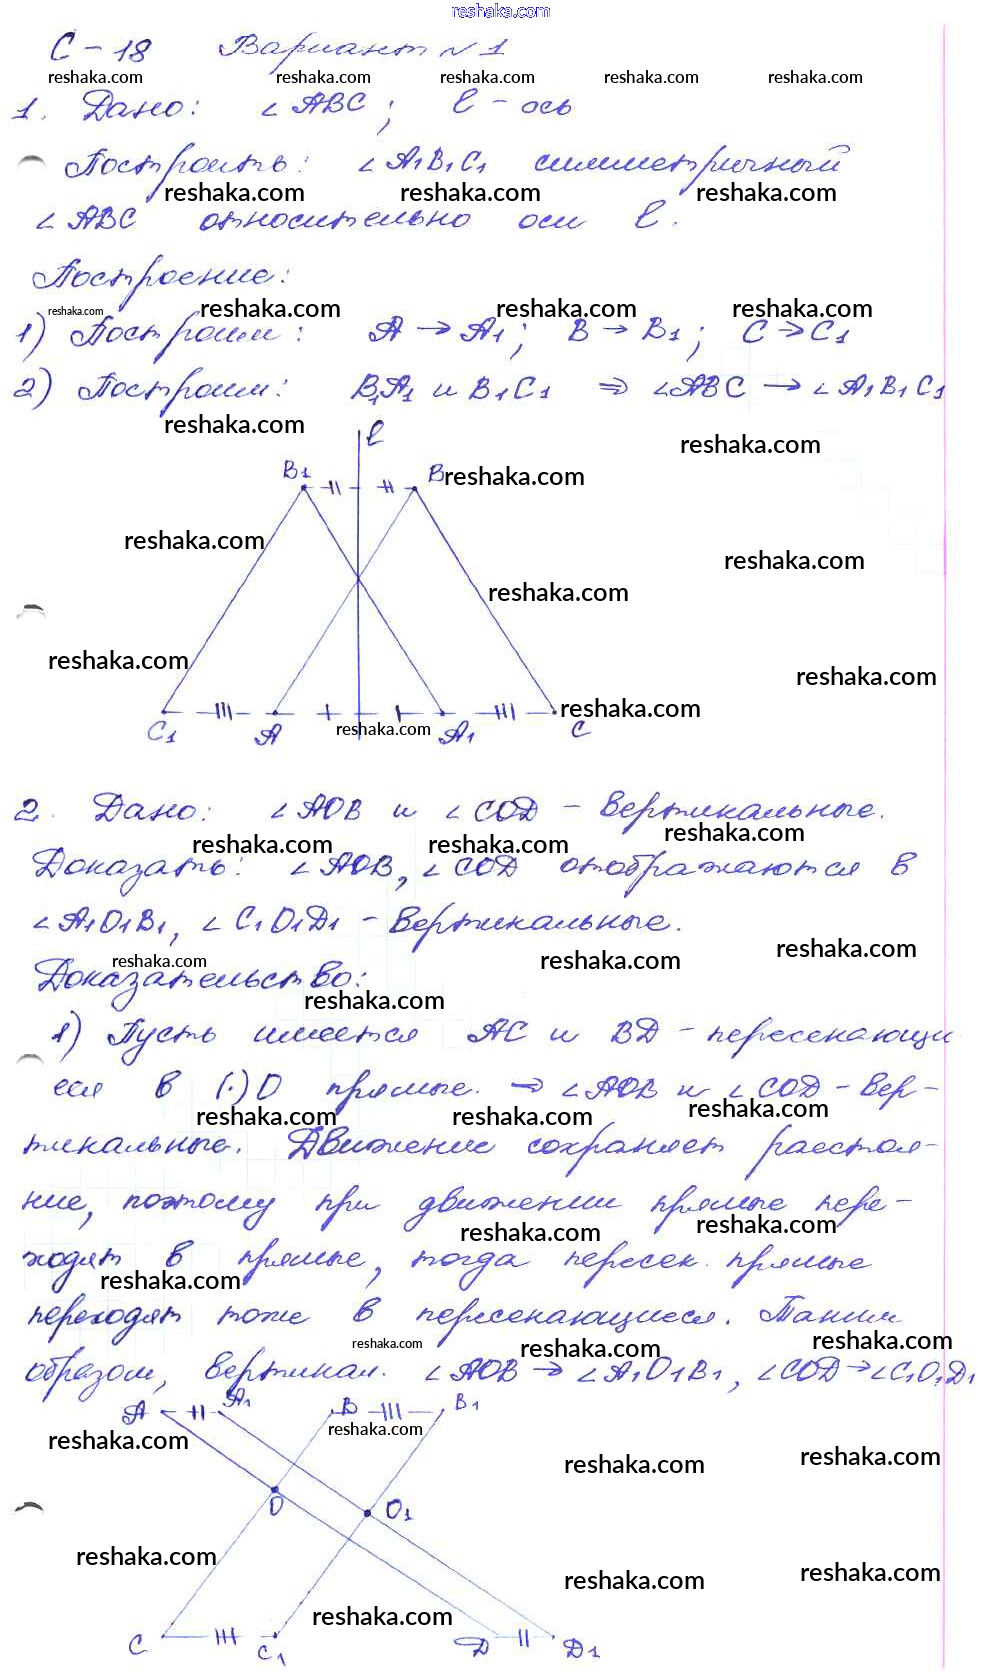 reshaka.com
С-18 Вариант №1
reshaka.com reshaka.com reshaka.com reshaka.com reshaka.com
1. Дано: ∠ABC; ℓ - ось
Построить: ∠A₁B₁C₁ симметричный
reshaka.com reshaka.com reshaka.com
∠ABC относительно оси ℓ.
Построение:
reshaka.com reshaka.com reshaka.com reshaka.com
1) Построим: A → A₁; B → B₁; C → C₁
2) Построим: B₁A₁ и B₁C₁ ⇒ ∠ABC → ∠A₁B₁C₁
reshaka.com ℓ reshaka.com
B₁ B reshaka.com
reshaka.com reshaka.com
reshaka.com
reshaka.com reshaka.com
reshaka.com
C₁ A reshaka.com A₁ C
2. Дано: ∠AOB и ∠COD - вертикальные.
reshaka.com reshaka.com reshaka.com
Доказать: ∠AOB, ∠COD отображаются в
∠A₁O₁B₁, ∠C₁O₁D₁ - вертикальные.
reshaka.com reshaka.com reshaka.com
Доказательство:
reshaka.com
1) Пусть имеется AC и BD - пересекающи
еся в (·) O прямые. → ∠AOB и ∠COD - вер-
reshaka.com reshaka.com reshaka.com
тикальные. Движение сохраняет расстоя-
ние, поэтому при движении прямые пере-
reshaka.com reshaka.com
ходят в прямые, тогда пересек. прямые
reshaka.com
переходят тоже в пересекающиеся. Таким
reshaka.com reshaka.com reshaka.com
образом, вертикал. ∠AOB → ∠A₁O₁B₁, ∠COD → ∠C₁O₁D₁
A A₁ B B₁
reshaka.com reshaka.com reshaka.com reshaka.com
O O₁
reshaka.com reshaka.com reshaka.com
reshaka.com
C C₁ D D₁